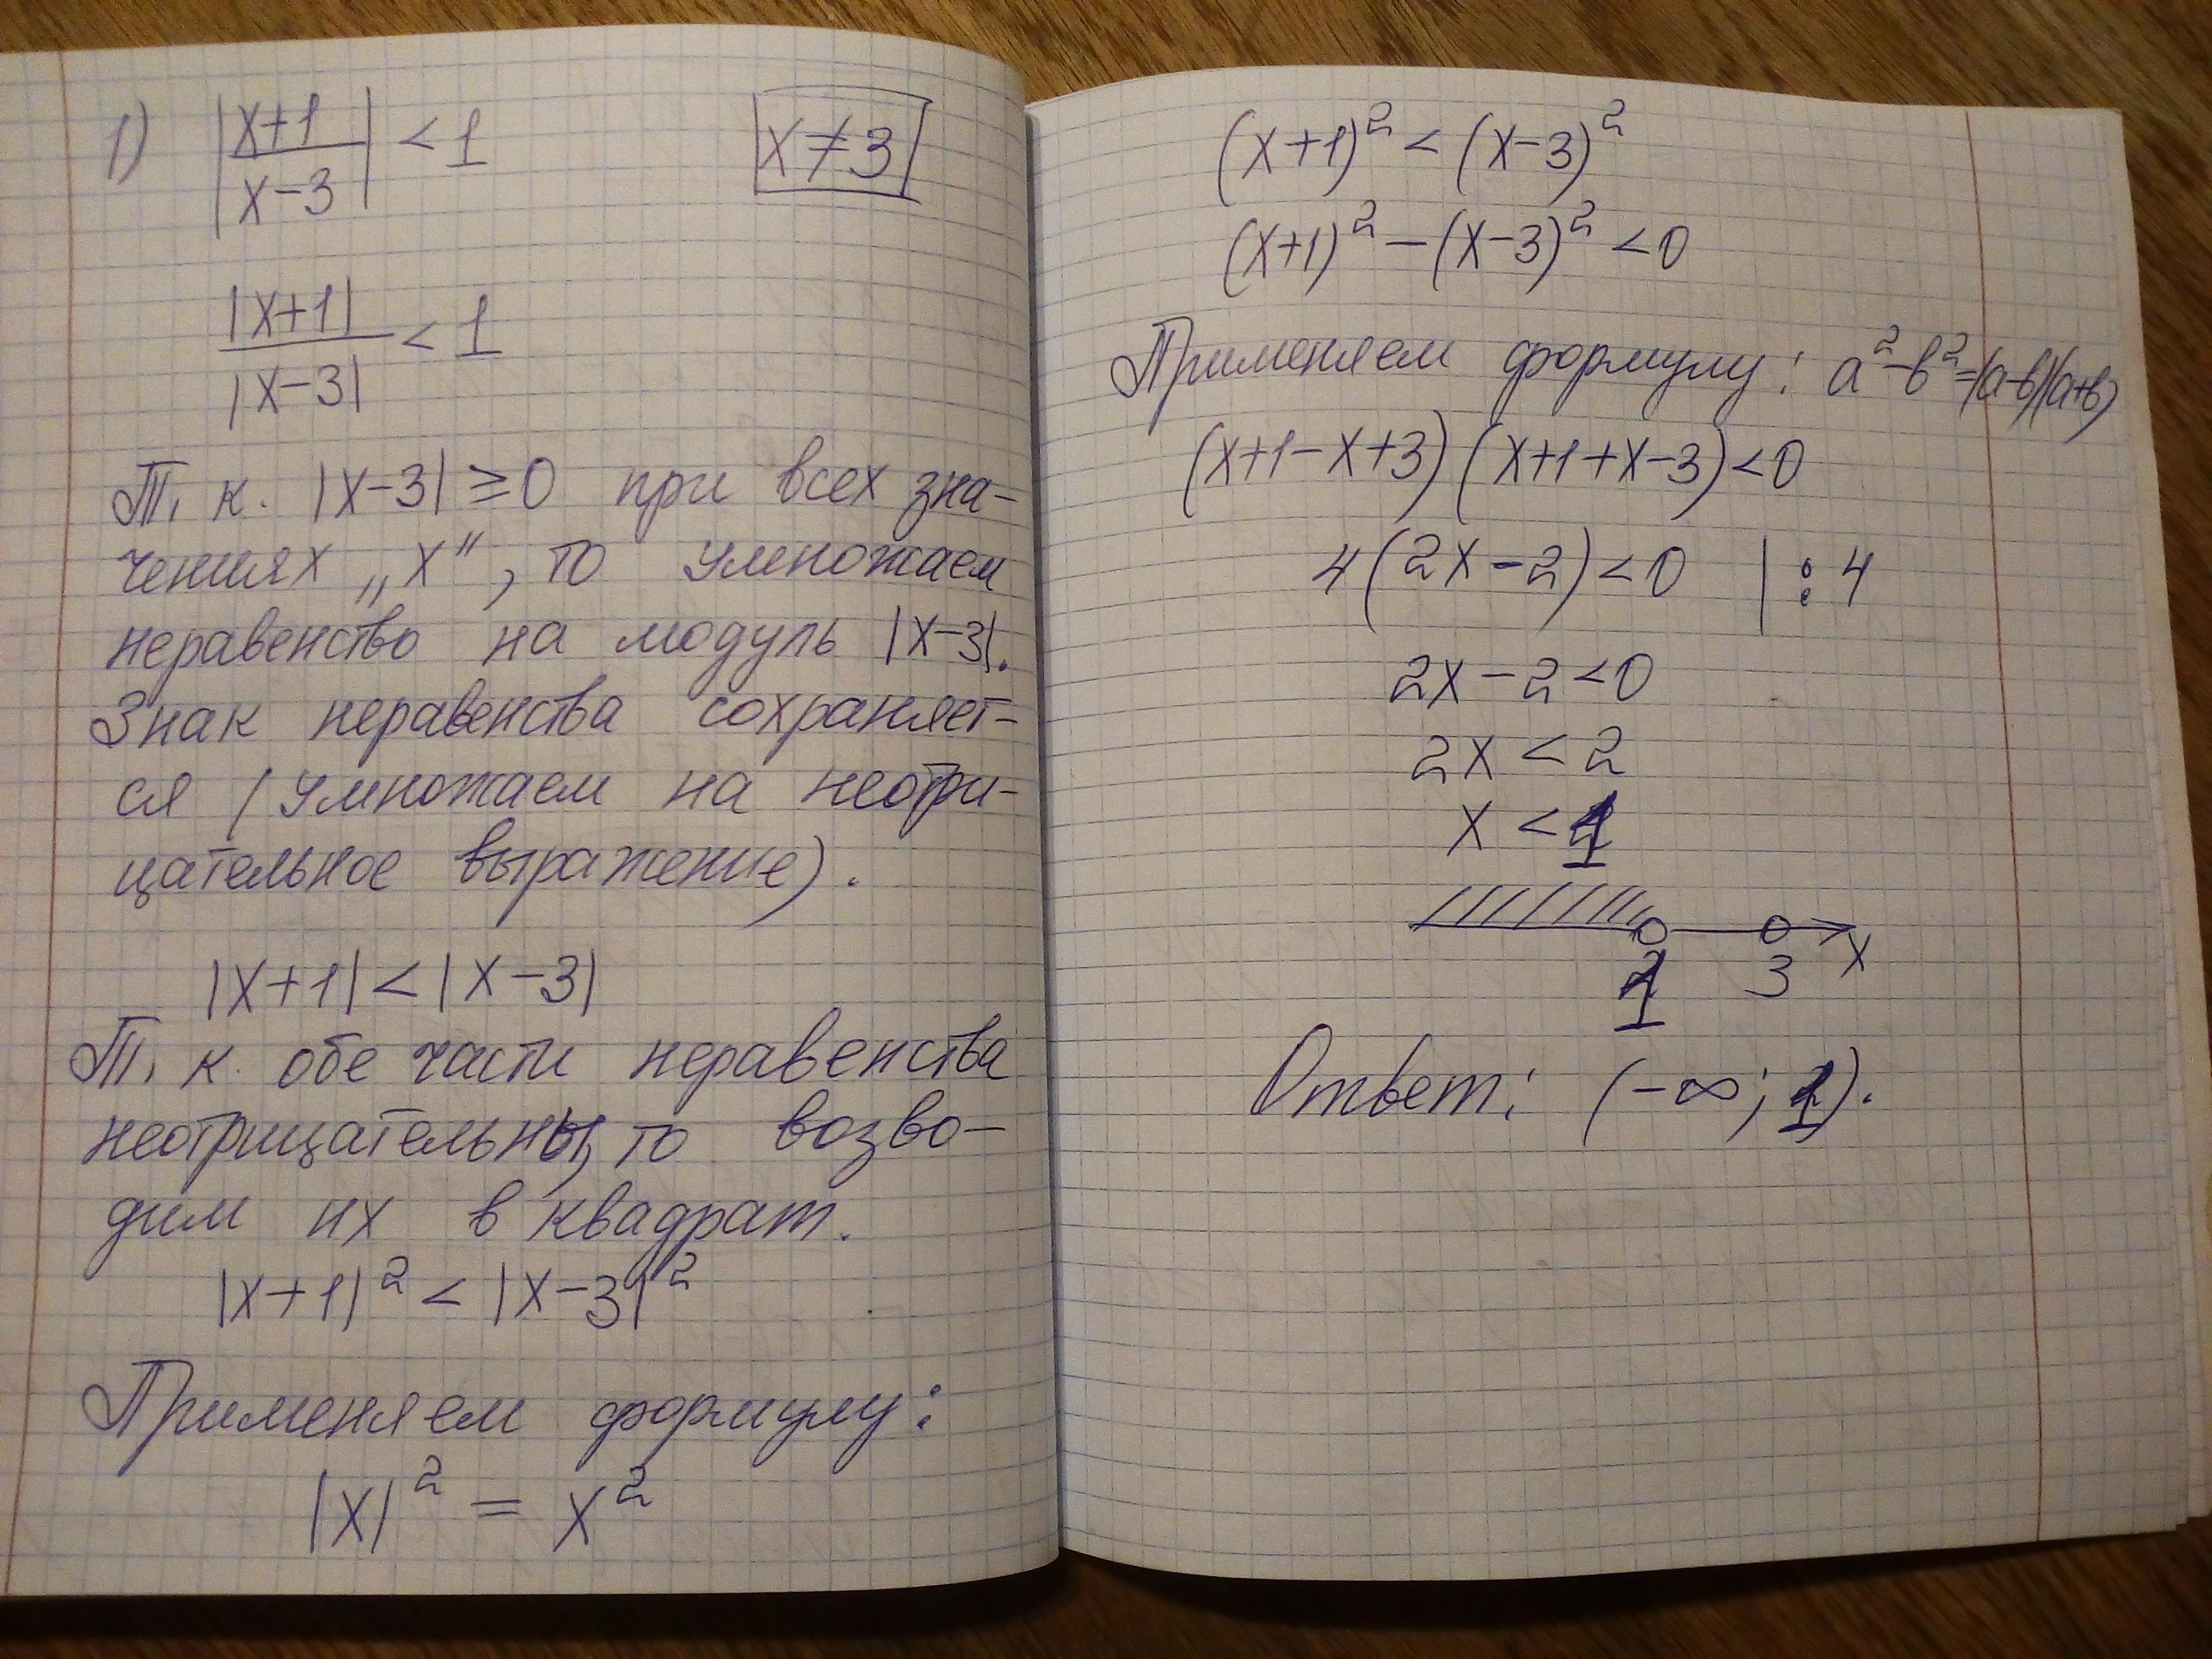 1) |x+1 / x-3| < 1
x≠3
|x+1| / |x-3| < 1
Т. к. |x-3| ≥ 0 при всех зна-
чениях „x", то умножаем
неравенство на модуль |x-3|.
Знак неравенства сохраняет-
ся (умножаем на неотри-
цательное выражение).
|x+1| < |x-3|
Т. к. обе части неравенства
неотрицательны, то возво-
дим их в квадрат.
|x+1|² < |x-3|²
Применяем формулу:
|x|² = x²
(x+1)² < (x-3)²
(x+1)² - (x-3)² < 0
Применяем формулу: a²-b²=(a-b)(a+b)
(x+1-x+3)(x+1+x-3)<0
4(2x-2)<0 | : 4
2x-2<0
2x<2
x<1
1 3 x
Ответ: (-∞; 1).